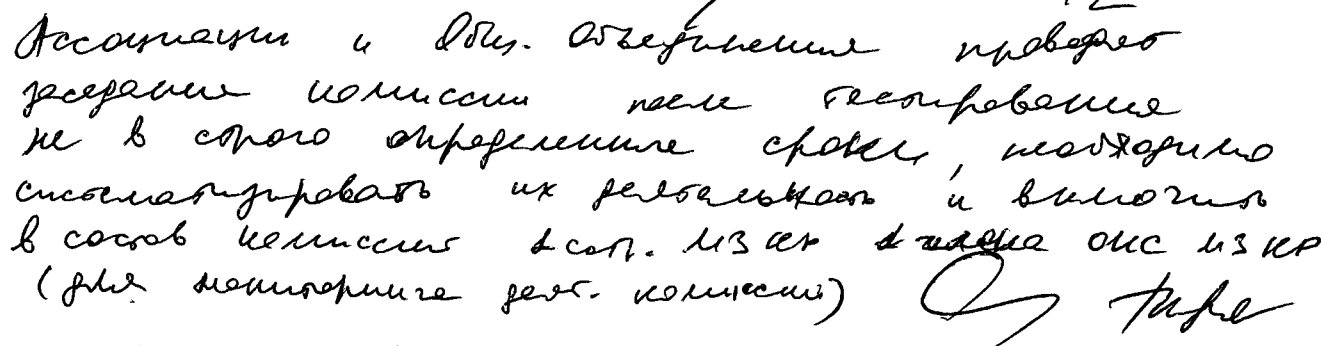 Ассоциации и Общ. Объединения проводят
заседание комиссии после тестирования
не в строго определенные сроки, необходимо
систематизировать их деятельность и включить
в состав комиссии 1 сотр. МЗ КР 1 члена ОКС МЗ КР
(для мониторинга деят. комиссии)